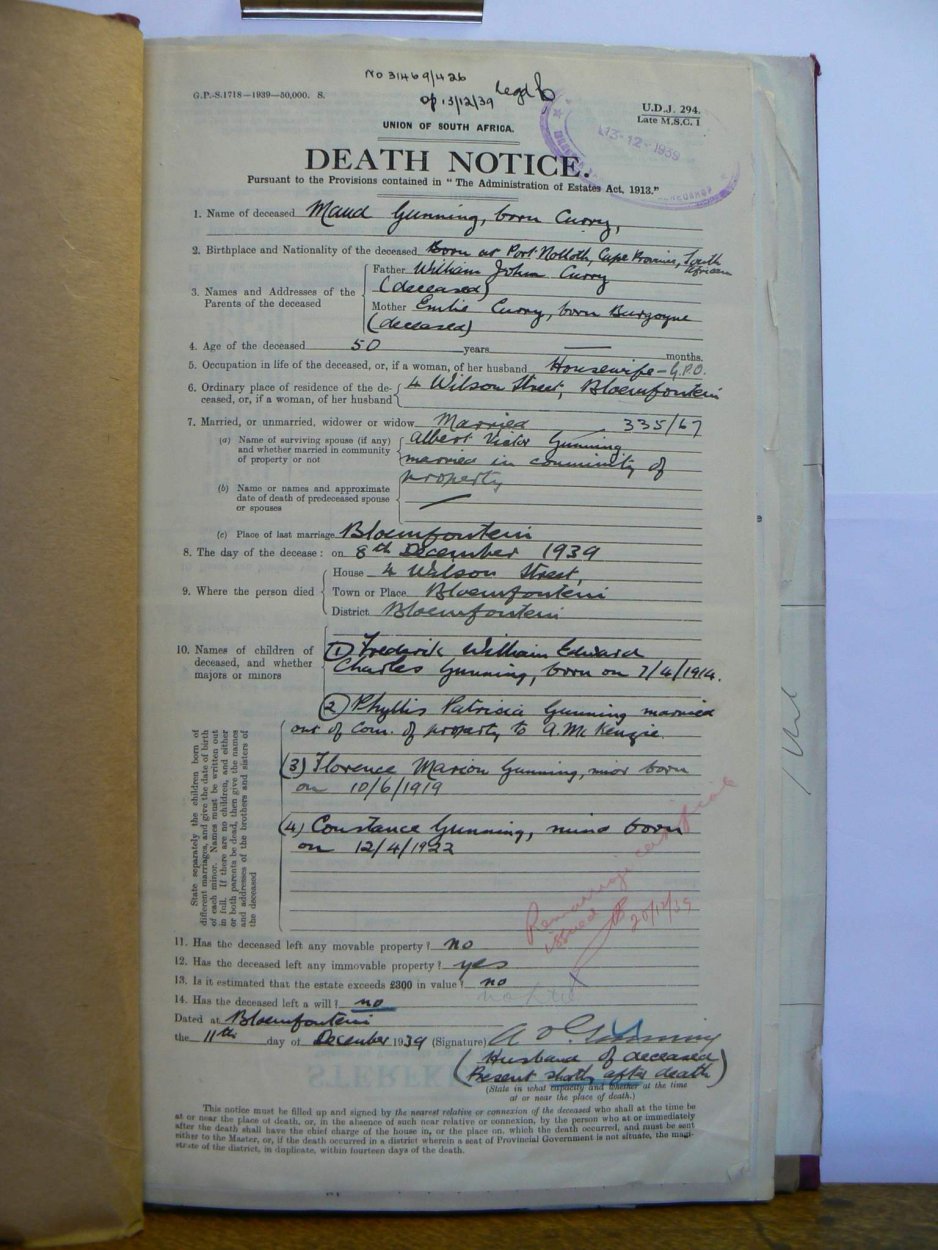 No 31469/426
legd
Op 13/12/39
G.P.-S.1718—1939—50,000. S.
U.D.J. 294.
Late M.S.C. 1
13-12-1939
UNION OF SOUTH AFRICA.
DEATH NOTICE.
Pursuant to the Provisions contained in "The Administration of Estates Act, 1913."
1. Name of deceased Maud Gunning, born Curry,
2. Birthplace and Nationality of the deceased Born at Port Nolloth, Cape Province, South African
3. Names and Addresses of the Parents of the deceased
Father William John Curry
(deceased)
Mother Emilie Curry, born Burgoyne
(deceased)
4. Age of the deceased 50 years — months.
5. Occupation in life of the deceased, or, if a woman, of her husband Housewife – G.P.O.
6. Ordinary place of residence of the de-
ceased, or, if a woman, of her husband
4 Wilson Street, Bloemfontein
7. Married, or unmarried, widower or widow Married 335/67
(a) Name of surviving spouse (if any)
and whether married in community
of property or not
Albert Victor Gunning
married in community of
property
(b) Name or names and approximate
date of death of predeceased spouse
or spouses
(c) Place of last marriage Bloemfontein
8. The day of the decease: on 8th December 1939
9. Where the person died
House 4 Wilson Street,
Town or Place Bloemfontein
District Bloemfontein
10. Names of children of
deceased, and whether
majors or minors
(1) Frederik William Edward
Charles Gunning, born on 7/4/1914.
(2) Phyllis Patricia Gunning married
out of com. of property to A. McKenzie.
(3) Florence Marion Gunning, minor born
on 10/6/1919
(4) Constance Gunning, minor born
on 12/4/1922
State separately the children born of
different marriages, and give the date of birth
of each minor. Names must be written out
in full. If there are no children, and either
or both parents be dead, then give the names
and addresses of the brothers and sisters of
the deceased
Remarriage certificate
issued
20/12/39
11. Has the deceased left any movable property? no
12. Has the deceased left any immovable property? yes
13. Is it estimated that the estate exceeds £300 in value? no
14. Has the deceased left a will? no
Dated at Bloemfontein
the 11th day of December 1939 (Signature) A V Gunning
(Husband of deceased
Present shortly after death)
(State in what capacity and whether at the time
at or near the place of death.)
STERFK
This notice must be filled up and signed by the nearest relative or connexion of the deceased who shall at the time be
at or near the place of death, or, in the absence of such near relative or connexion, by the person who at or immediately
after the death shall have the chief charge of the house in, or the place on, which the death occurred, and must be sent
either to the Master, or, if the death occurred in a district wherein a seat of Provincial Government is not situate, the magi-
strate of the district, in duplicate, within fourteen days of the death.